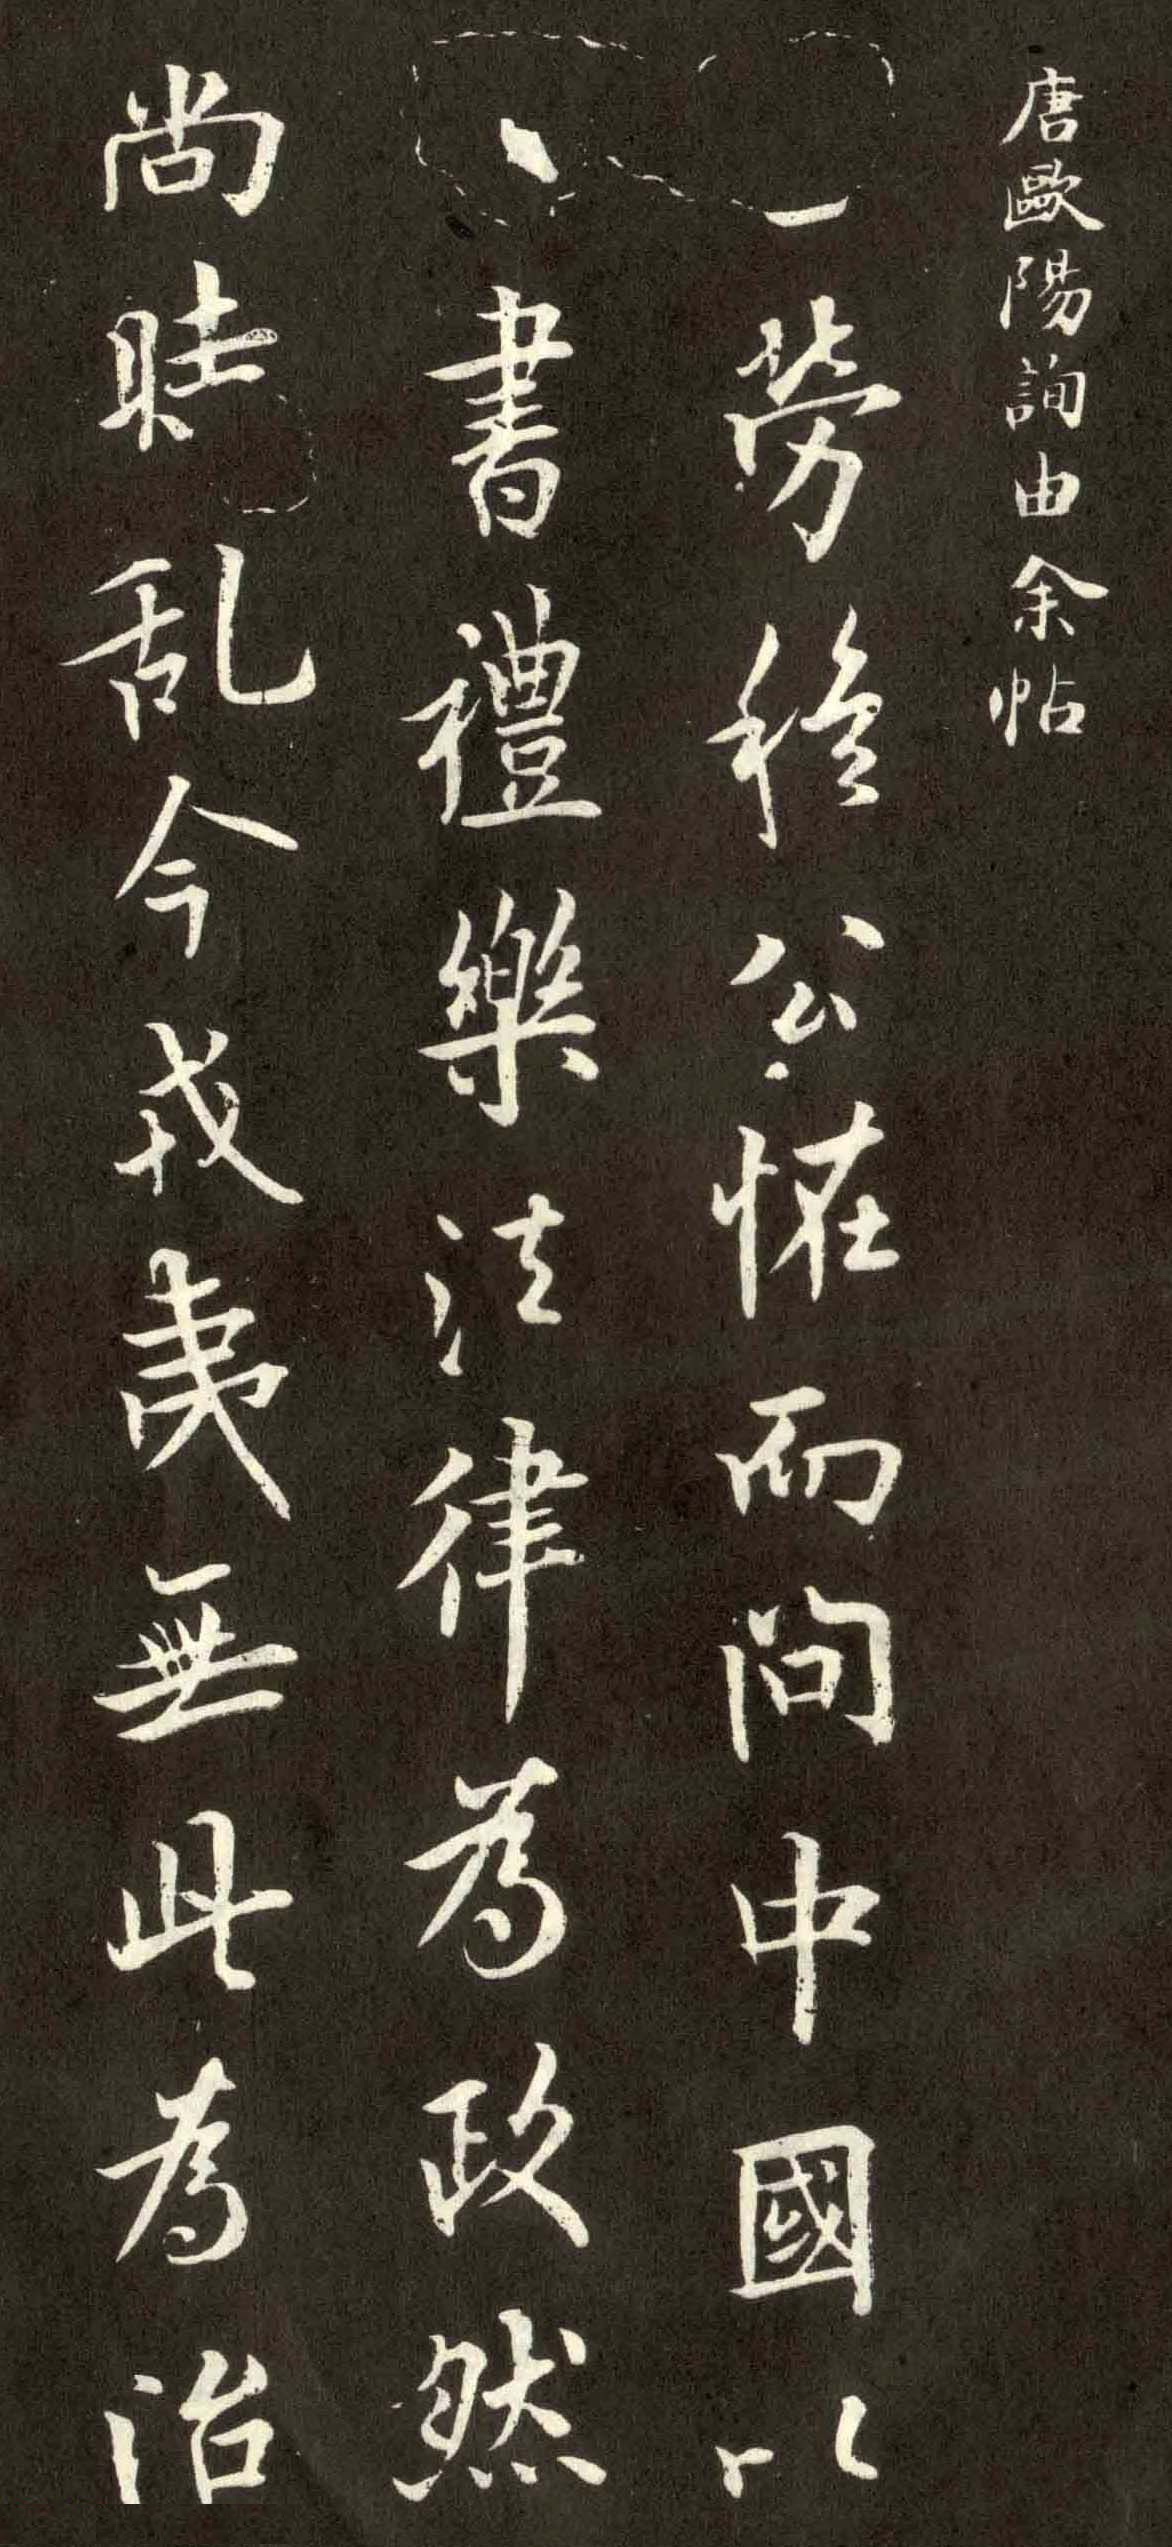 唐歐陽詢由余帖
勞穆公恠而問中國以
書禮樂法律為政然
尚時乱今戎夷無此為治